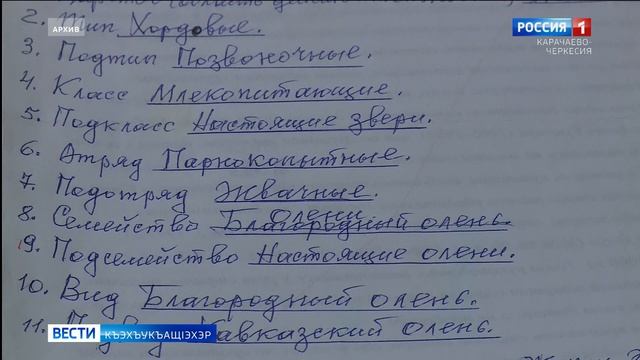 2. Тип Хордовые.
АРХИВ
РОССИЯ 1
КАРАЧАЕВО-
ЧЕРКЕСИЯ
3. Подтип Позвоночные.
4. Класс Млекопитающие.
5. Подкласс Настоящие звери.
6. Отряд Парнокопытные.
7. Подотряд Жвачные.
олени
8. Семейство Благородный олень.
9. Подсемейство Настоящие олени.
10. Вид Благородный олень.
11. Кавказский олень.
ВЕСТИ КЪЭХЪУКЪАЩIЭХЭР